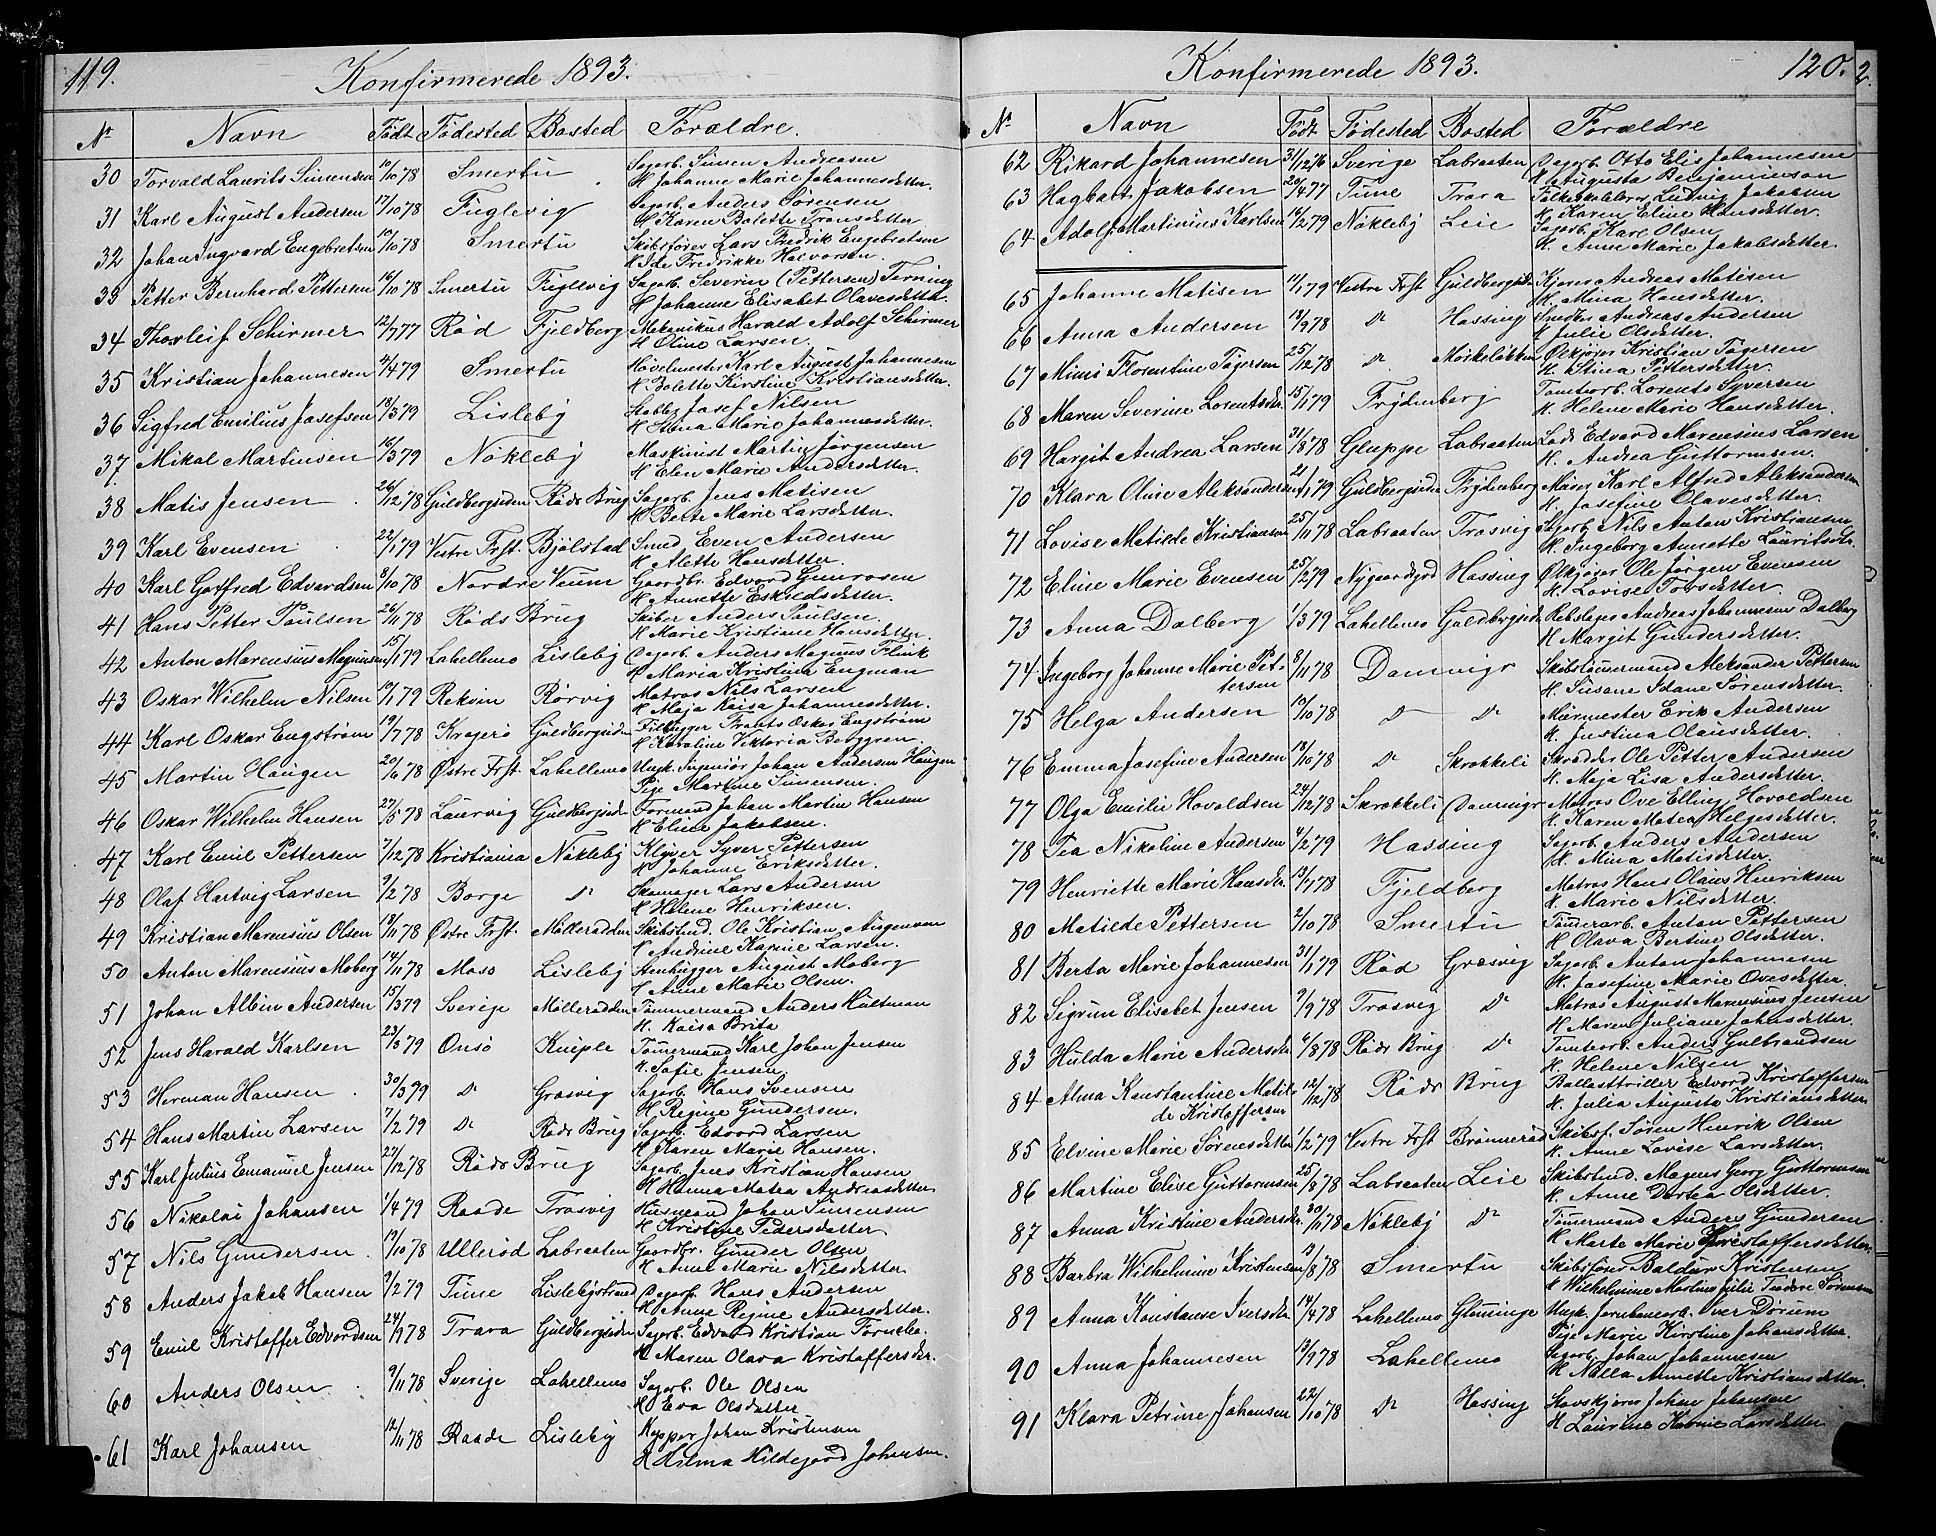 119.
Konfirmerede 1893.
Nr Navn Født Fødested Bosted Forældre.
30 Torvald Laurits Simensen 10/10 78 Smertu Sagarb. Simen Andreasen
H Johanne Marie Johannesdetter.
31 Karl August Andersen 17/10 78 Fuglevig Sagarb. Anders Sørensen
H Karen Bolette Transdetter
32 Johan Ingvard Engebretsen 10/10 78 Smertu Skibsfører Lars Fredrik Engebretsen
H Ide Fredrikke Halvorsen.
33 Petter Bernhard Pettersen 16/10 78 Smertu Fuglevig Sagarb. Severin (Pettersen) Terning
H Johanne Elisabet Olavesdetter.
34 Thorleif Schirmer 12/7 77 Rød Fjeldberg Mekanikus Harald Adolf Schirmer
H Oline Larsen.
35 Kristian Johannesen 4/4 79 Smertu Høvelmester Karl August Johannesen
H Bolette Kirstine Kristiansdetter.
36 Sigfred Emilius Josefsen 13/3 79 Lisleby Stabler Josef Nilsen
H Stina Marie Johannesdetter.
37. Mikal Martinsen 16/3 79 Nökleby Maskinist Martin Jørgensen
H Elen Marie Andersdetter.
38 Matis Jensen 26/12 78 Guldbergsiden Røds Brug Sagarb. Jens Matisen
H Berte Marie Larsdetter.
39 Karl Evensen 22/1 79 Vestre Frst. Bjölstad Smed Even Andersen
H Alette Hansdetter.
40 Karl Gotfred Edvardsen 8/10 78 Nordre Veum Gaardbr. Edvard Gunrosen
H Annette Eskildsdetter.
41 Hans Petter Paulsen 26/11 78 Røds Brug Skiber Anders Paulsen
H Marie Kristiane Hansdetter.
42 Anton Marensius Magnusen 15/1 79 Lahellemo Lisleby Dagarb. Anders Magnus Flink
H Maria Kristina Engman
43 Oskar Wilhelm Nilsen 19/1 79 Rekvin Rörvig Matros Nils Larsen
H Maja Kaisa Johannesdetter.
44 Karl Oskar Engstrøm 19/7 78 Kragerö Guldbergsiden Filhugger Frants Oskar Engstrøm
H Karoline Viktoria Berggren.
45 Martin Haugen 20/6 78 Østre Frst. Lahellemo Ungk. Ingeniør Johan Andersen Haugen
Pige Martine Simensen
46 Oskar Wilhelm Hansen 27/5 78 Laurvig Guldbergsid. Formand Johan Martin Hansen
H Eline Jakobsen.
47 Karl Emil Pettersen 7/12 78 Kristiania Nökleby Klyver Syver Pettersen
H Johanne Eriksdetter.
48 Olaf Hartvig Larsen 9/2 78 Borge Do Skomager Lars Andersen
H Helene Henriksen.
49 Kristian Marensius Olsen 13/11 78 Østre Frst. Mölleradden Skibstmd. Ole Kristian Augensen
H Andrine Karine Larsen.
50 Anton Marensius Moberg 14/11 78 Moss Lisleby Stenhugger August Moberg
H Anne Marie Olsen.
51 Johan Albin Andersen 15/3 79 Sverige Mölleradden Tömmermand Anders Hultman
H. Kaisa Brita
52 Jens Harald Karlsen 23/3 79 Onsö Kniple Tömermand Karl Johan Jensen
H. Sofie Jensen
53 Herman Hansen 30/3 79 Do Græsvig Sagarb. Hans Svensen
H Regine Gundersen.
54 Hans Martin Larsen 7/2 79 Do Røds Brug Sagarb. Edvard Larsen
H Karen Marie Hansen.
55 Karl Julius Emanuel Jensen 27/12 78 Røds Brug Sagarb. Jens Kristian Hansen
H Hanna Matea Andreasdetter
56 Nikolai Johansen 1/4 79 Raade Trosvig Husmand Johan Simensen
H Kristine Pedersdatter
57 Nils Gundersen 19/10 78 Ullerød Labraaten Gaardbr. Gunder Olsen
H Anne Marie Nilsdetter
58 Anders Jakob Hansen 9/2 79 Tune Lislebystrand Dagarb. Hans Andersen
H Anne Regine Andersdetter.
59 Emil Kristoffer Edvardsen 24/9 78 Trara Guldbergsiden Sagarb. Edvard Kristian Tornebo.
H Maren Olava Kristoffersdtr.
60 Anders Olsen 9/11 78 Sverige Lahellemo Sagarb. Ole Olsen
H Eva Olsdatter
61 Karl Johansen 12/11 78 Raade Lisleby Kypper Johan Kristensen
H Hilma Hildegard Johansen.
Konfirmerede 1893. 120.
Nr Navn Født Fødested Bosted Forældre
62 Rikard Johannesen 31/12 76 Sverige Labraaten Dagarb. Otto Elis Johannesen
H Augusta Benjaminson
63 Hagbart Jakobsen 20/4 77 Tune Trara Folkeskolelærer Ludvig Jakobsen
H. Karen Eline Hansdetter.
64 Adolf Martinius Karlsen 16/2 79 Nökleby Leie Sagarb. Karl Olsen
H. Anne Marie Jakobsdetter.
65 Johanne Matisen 11/1 79 Vestre Frst Guldbergsid. Kjører Andreas Matisen
H. Mina Hansdetter.
66 Anna Andersen 18/9 78 Do Hassing Snedker Andreas Andersen
H Julie Olsdetter.
67 Mimi Florentine Tøgersen 25/12 78 Do Mørkeløkken Ølkjører Kristian Tøgersen
H. Stina Pettersdetter.
68 Maren Severine Lorentsdtr. 15/1 79 Frydenberg Tomtearb. Lorents Syversen
H. Helene Marie Hansdetter.
69 Hargit Andrea Larsen 31/8 78 Gluppe Labraaten Lods Edvard Marensius Larsen
H. Andrea Guttormsen.
70 Klara Oline Aleksandersen 21/1 79 Guldbergsiden Frydenberg Murer Karl Alfred Aleksandersen
H. Josefine Olavesdetter.
71 Lovise Matilde Kristiansen 25/11 78 Labraaten Trosvig Sagarb. Nils Anton Kristiansen
H. Ingeborg Annette Lauritsdtr.
72 Eline Marie Evensen 25/2 79 Nygaardsgrd Hassing Ølkjører Ole Jørgen Evensen
H. Lovise Torsdetter.
73 Anna Dalberg 1/3 79 Lahellemo Guldbergsid. Rebslager Andreas Johannesen Dalberg
H Margit Gundersdetter.
74 Ingeborg Johanne Marie Pet-
tersen 8/11 78 Damvigr Skibstömmermand Aleksander Pettersen
H. Susane Idane Sørensdetter.
75 Helga Andersen 19/10 78 Do Do Murmester Erik Andersen
H. Justina Olausdetter.
76 Emma Josefine Andersen 18/10 78 Do Skrokkeli Skrædder Ole Petter Andersen
H. Maja Lisa Andersdetter.
77 Olga Emilie Hovaldsen 24/12 78 Skrokkeli Damvigr Matros Ove Elling Hovaldsen
H. Karen Matea Helgesdetter.
78 Tea Nikoline Andersen 4/2 79 Hassing Sagarb. Anders Andersen
H. Mina Matisdetter.
79 Henriette Marie Hansdtr. 13/7 78 Fjeldberg Matros Hans Olaus Henriksen
H. Marie Nilsdetter.
80 Matilde Pettersen 2/10 78 Smertu Tömerarb. Anton Pettersen
H Olava Bertine Olsdetter.
81 Berta Marie Johannesen 31/1 79 Rød Græsvig Sagarb. Anton Johannesen
H. Josefine Marie Ovesdetter.
82 Sigrun Elisabet Jensen 9/9 78 Trosvig Do Matros August Marensius Jensen
H Maren Juliane Johnsdetter
83 Hulda Marie Andersdtr. 6/8 78 Røds Brug Do Tomtearb. Anders Gulbrandsen
H. Helene Nilsen
84 Alma Konstantine Matil-
de Kristoffersen 12/12 78 Røds Brug Ballasttriller Edvard Kristoffersen
H. Julia Augusta Kristiansdetter
85 Elvine Marie Sørensdetter 1/2 79 Vestre Frst Brönnerød Skibsf. Søren Henrik Olsen
H. Anne Lovise Larsdetter.
86 Martine Elise Guttormsen 25/8 78 Labraaten Leie Skibstmd. Magnus Georg Guttormsen
H. Anne Dortea Olsdetter.
87 Anna Kristine Andersdtr. 30/11 78 Nökleby Do Tömermand Anders Gundersen
H Marte Marie Kristoffersdetter.
88 Barbra Wilhelmine Kristensen 13/8 78 Smertu Skibsfører Baldur Kristensen
H Wilhelmine Martine Julie Tudore Sørensen
89 Anna Konstanse Iversdtr 14/4 78 Lahellemo Glemminge Ungk. Jernbanearb. Iver Dorum
Pige Marie Kirstine Johansdetter.
90 Anna Johannesen 13/9 78 Lahellemo Sagarb. Johan Johannesen
H Nella Annette Kristiansdetter.
91 Klara Petrine Johansen 22/10 78 Do Hassing Stavskjører Johan Johansen
H Laurine Karine Larsdetter